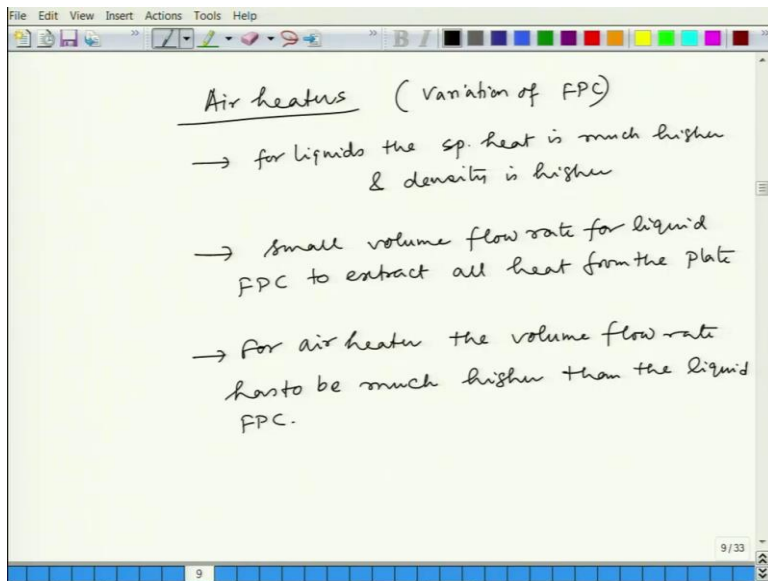 File Edit View Insert Actions Tools Help
B I
Air heaters (Variation of FPC)
→ for liquids the sp. heat is much higher
& density is higher
→ small volume flow rate for liquid
FPC to extract all heat from the plate
→ For air heater the volume flow rate
has to be much higher than the liquid
FPC.
9/33
9